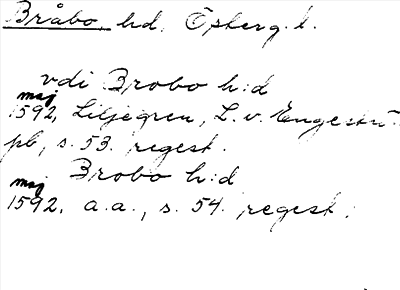 Bråbo hd, Östergötl.
vdi Brobo h:d
maj
1592, Liljegren, L. v. Engeström
pb, s. 53. regest.
Brobo h:d
maj
1592. a.a., s. 54. regest.